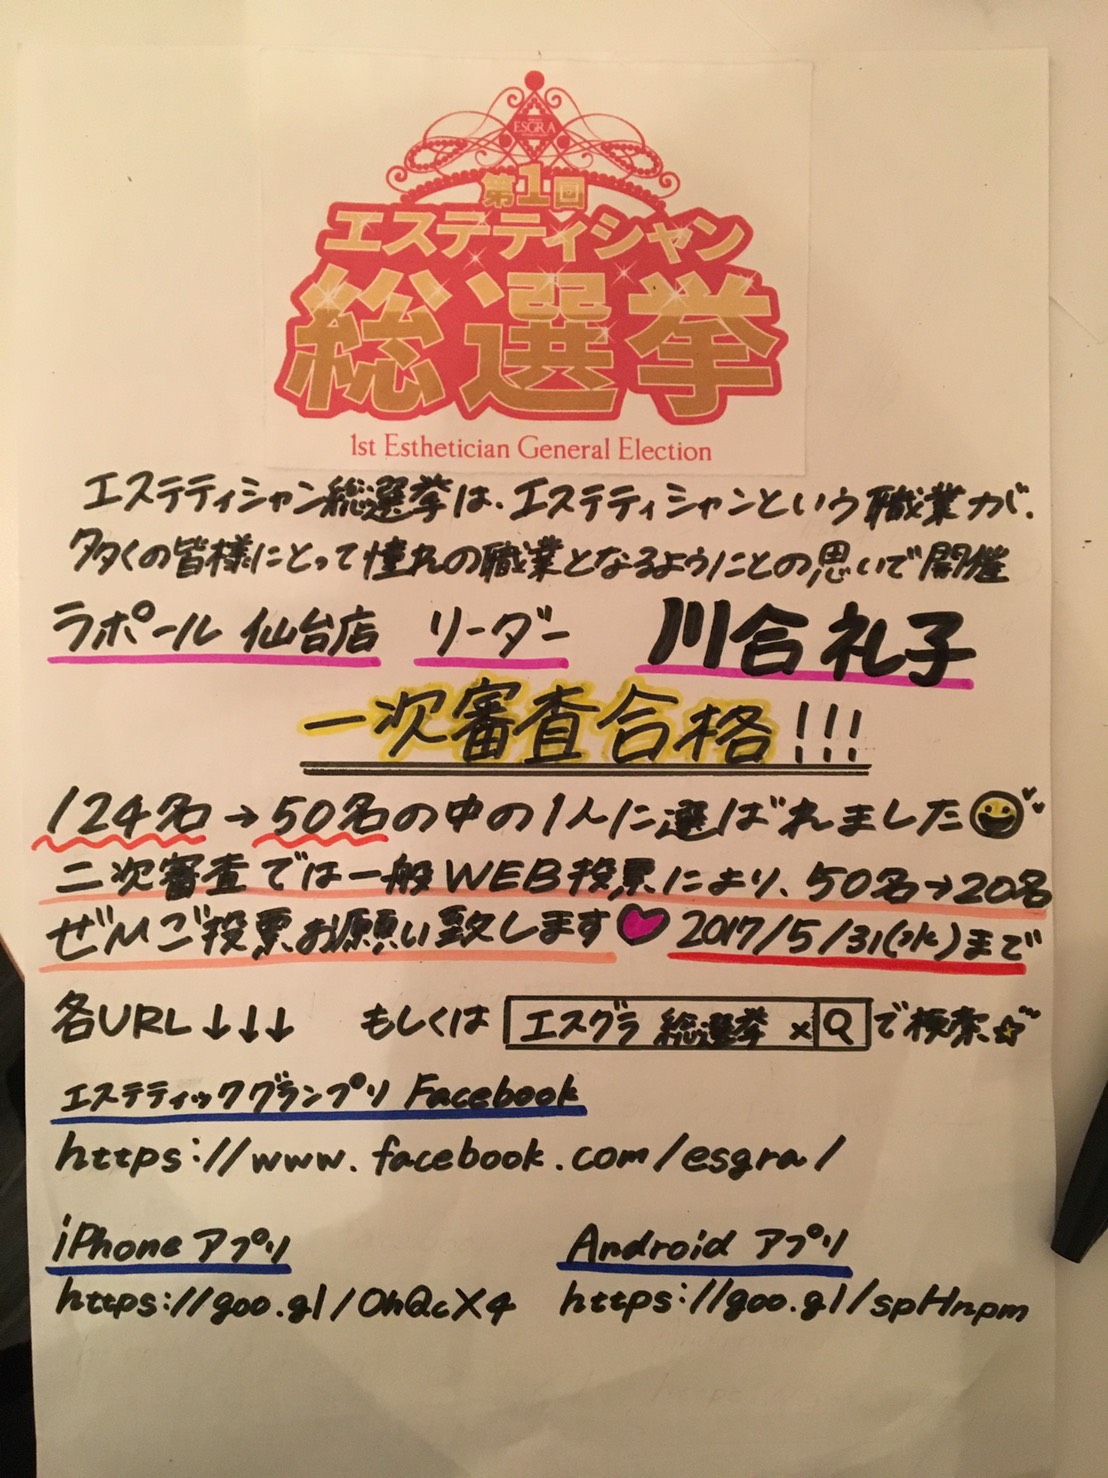 ESGRA
第1回
エステティシャン
総選挙
1st Esthetician General Election
エステティシャン総選挙は、エステティシャンという職業が、
多くの皆様にとって憧れの職業となるようにとの思いで開催
ラポール 仙台店 リーダー 川合礼子
一次審査合格!!!
124名→50名の中の1人に選ばれました
二次審査では一般WEB投票により、50名→20名
ぜひご投票お願い致します 2017/5/31(水)まで
各URL↓↓↓ もしくは エスグラ 総選挙 × Q で検索☆
エステティックグランプリ Facebook
https://www.facebook.com/esgra/
iPhoneアプリ Androidアプリ
https://goo.gl/OhQcX4 https://goo.gl/spHnpm